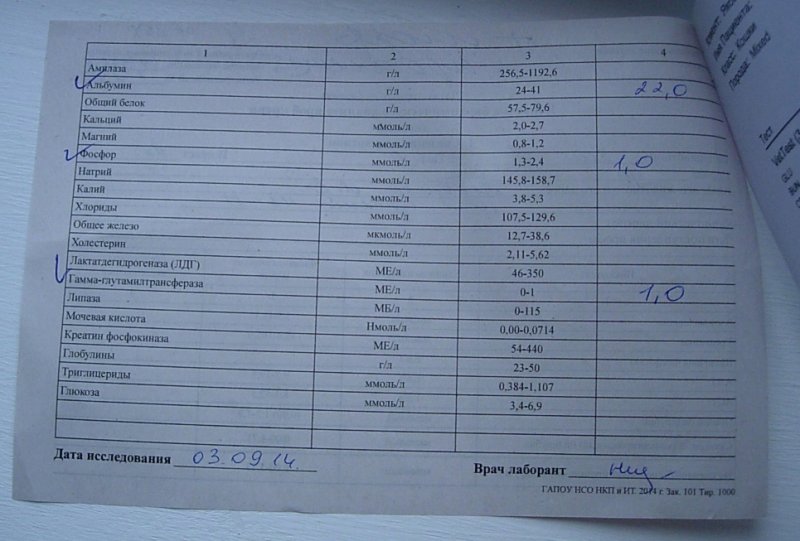 1 2 3 4
Амилаза г/л 256,5-1192,6
Альбумин г/л 24-41 22,0
Общий белок г/л 57,5-79,6
Кальций ммоль/л 2,0-2,7
Магний ммоль/л 0,8-1,2
Фосфор ммоль/л 1,3-2,4 1,0
Натрий ммоль/л 145,8-158,7
Калий ммоль/л 3,8-5,3
Хлориды ммоль/л 107,5-129,6
Общее железо мкмоль/л 12,7-38,6
Холестерин ммоль/л 2,11-5,62
Лактатдегидрогеназа (ЛДГ) МЕ/л 46-350
Гамма-глутамилтрансфераза МЕ/л 0-1 1,0
Липаза МБ/л 0-115
Мочевая кислота Нмоль/л 0,00-0,0714
Креатин фосфокиназа МЕ/л 54-440
Глобулины г/л 23-50
Триглицериды ммоль/л 0,384-1,107
Глюкоза ммоль/л 3,4-6,9
Дата исследования 03.09.14. Врач лаборант
ГАПОУ НСО НКП и ИТ. 2014 г. Зак. 101 Тир. 1000
Класс: Кошки
Порода: Mixed
Тест
VetTest
GLU